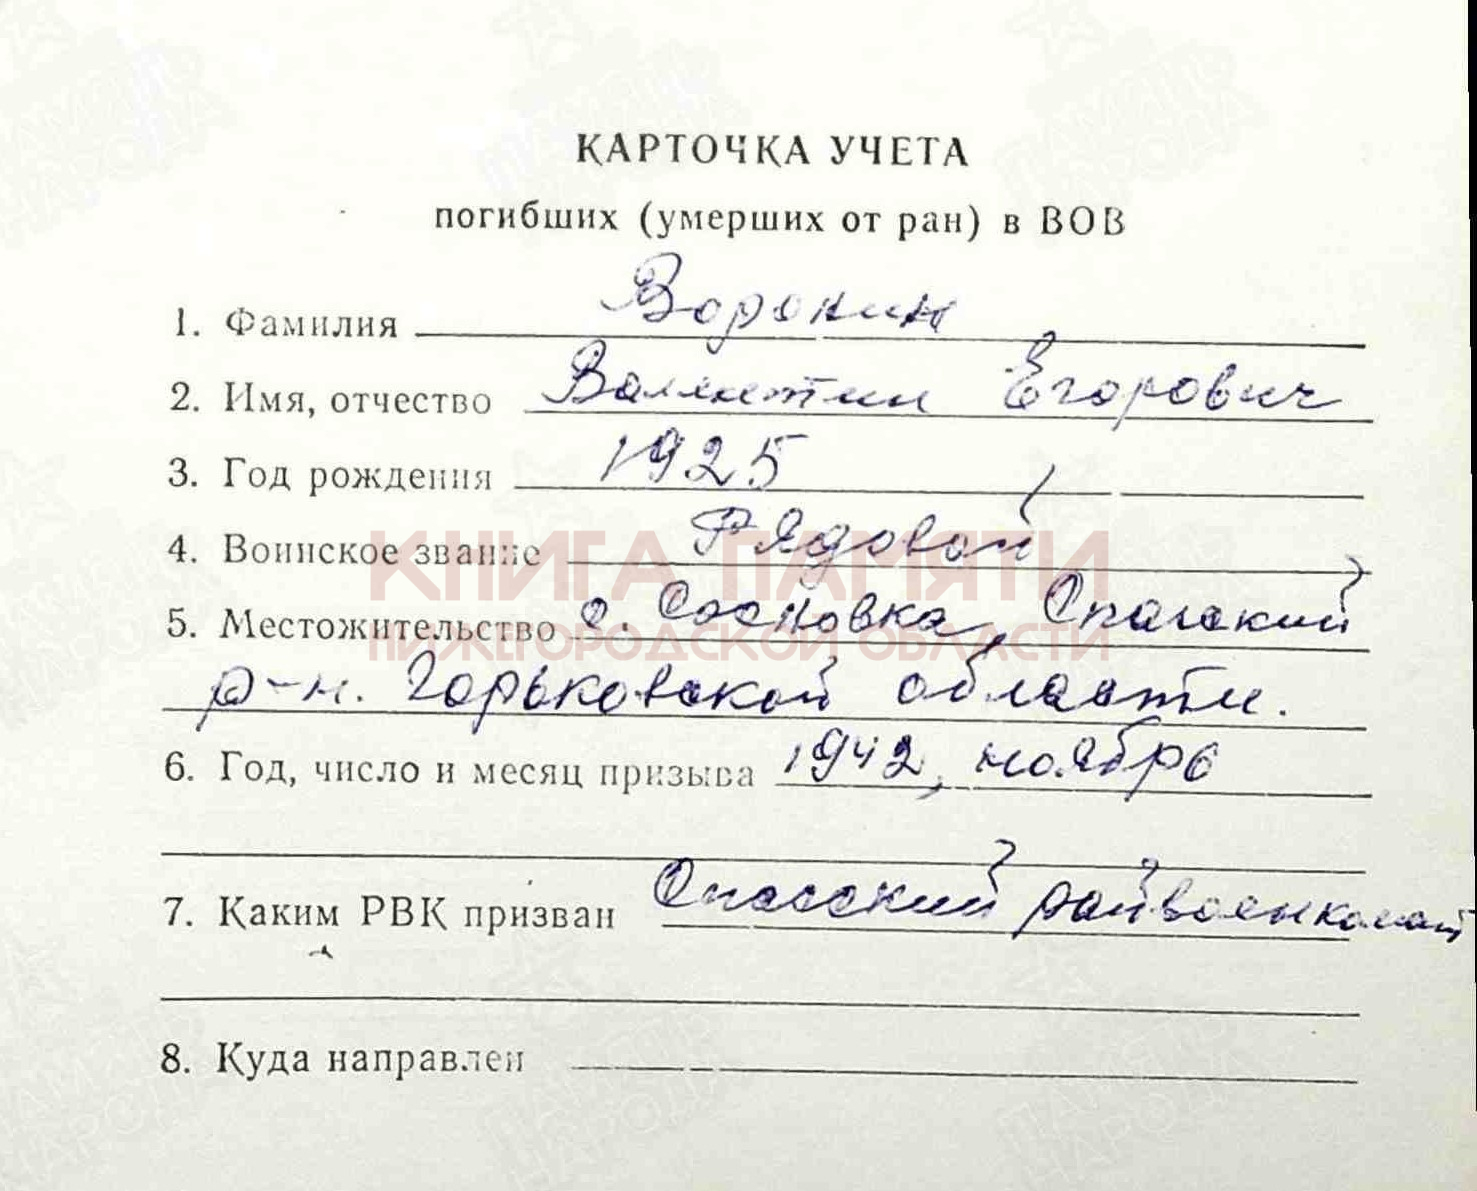 КАРТОЧКА УЧЕТА
погибших (умерших от ран) в ВОВ
1. Фамилия Воронин
2. Имя, отчество Валентин Егорович
3. Год рождения 1925
4. Воинское звание Рядовой
КНИГА ПАМЯТИ
5. Местожительство с. Сосновка, Спасский
НИЖЕГОРОДСКОЙ ОБЛАСТИ
р-н. Горьковской области.
6. Год, число и месяц призыва 1942, ноябрь
7. Каким РВК призван Спасский райвоенкомат
8. Куда направлен
ПАМЯТЬ НАРОДА